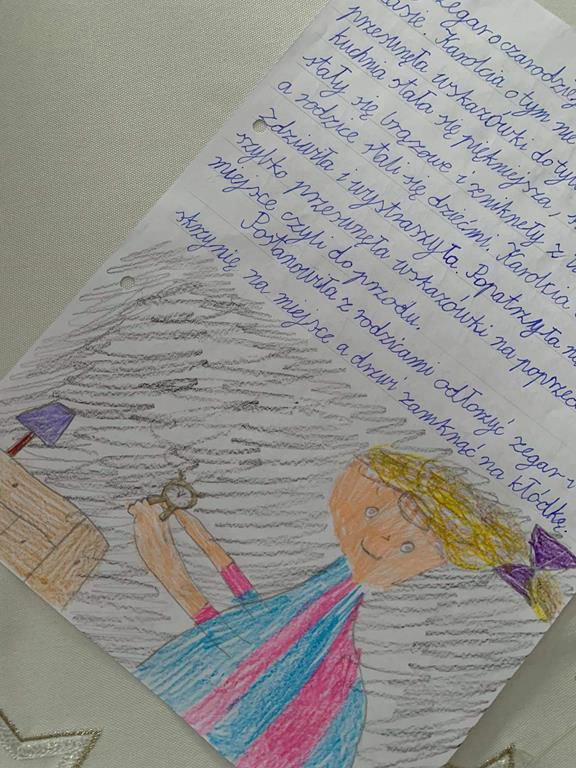 zegar oczarodziej
czasie. Karolcia o tym nie
przesunęła wskazówki do tyłu
kuchnia stała się piękniejsza, s
stały się brązowe i zniknęły z
a rodzice stali się dziećmi. Karolcia
Zdziwiła i wystraszyła. Popatrzyła na
szybko przesunęła wskazówki na poprzed
miejsce czyli do przodu.
Postanowiła z rodzicami odłorzyć zegar i
skrzynię na miejsce a drzwi zamknąć na kłódkę.